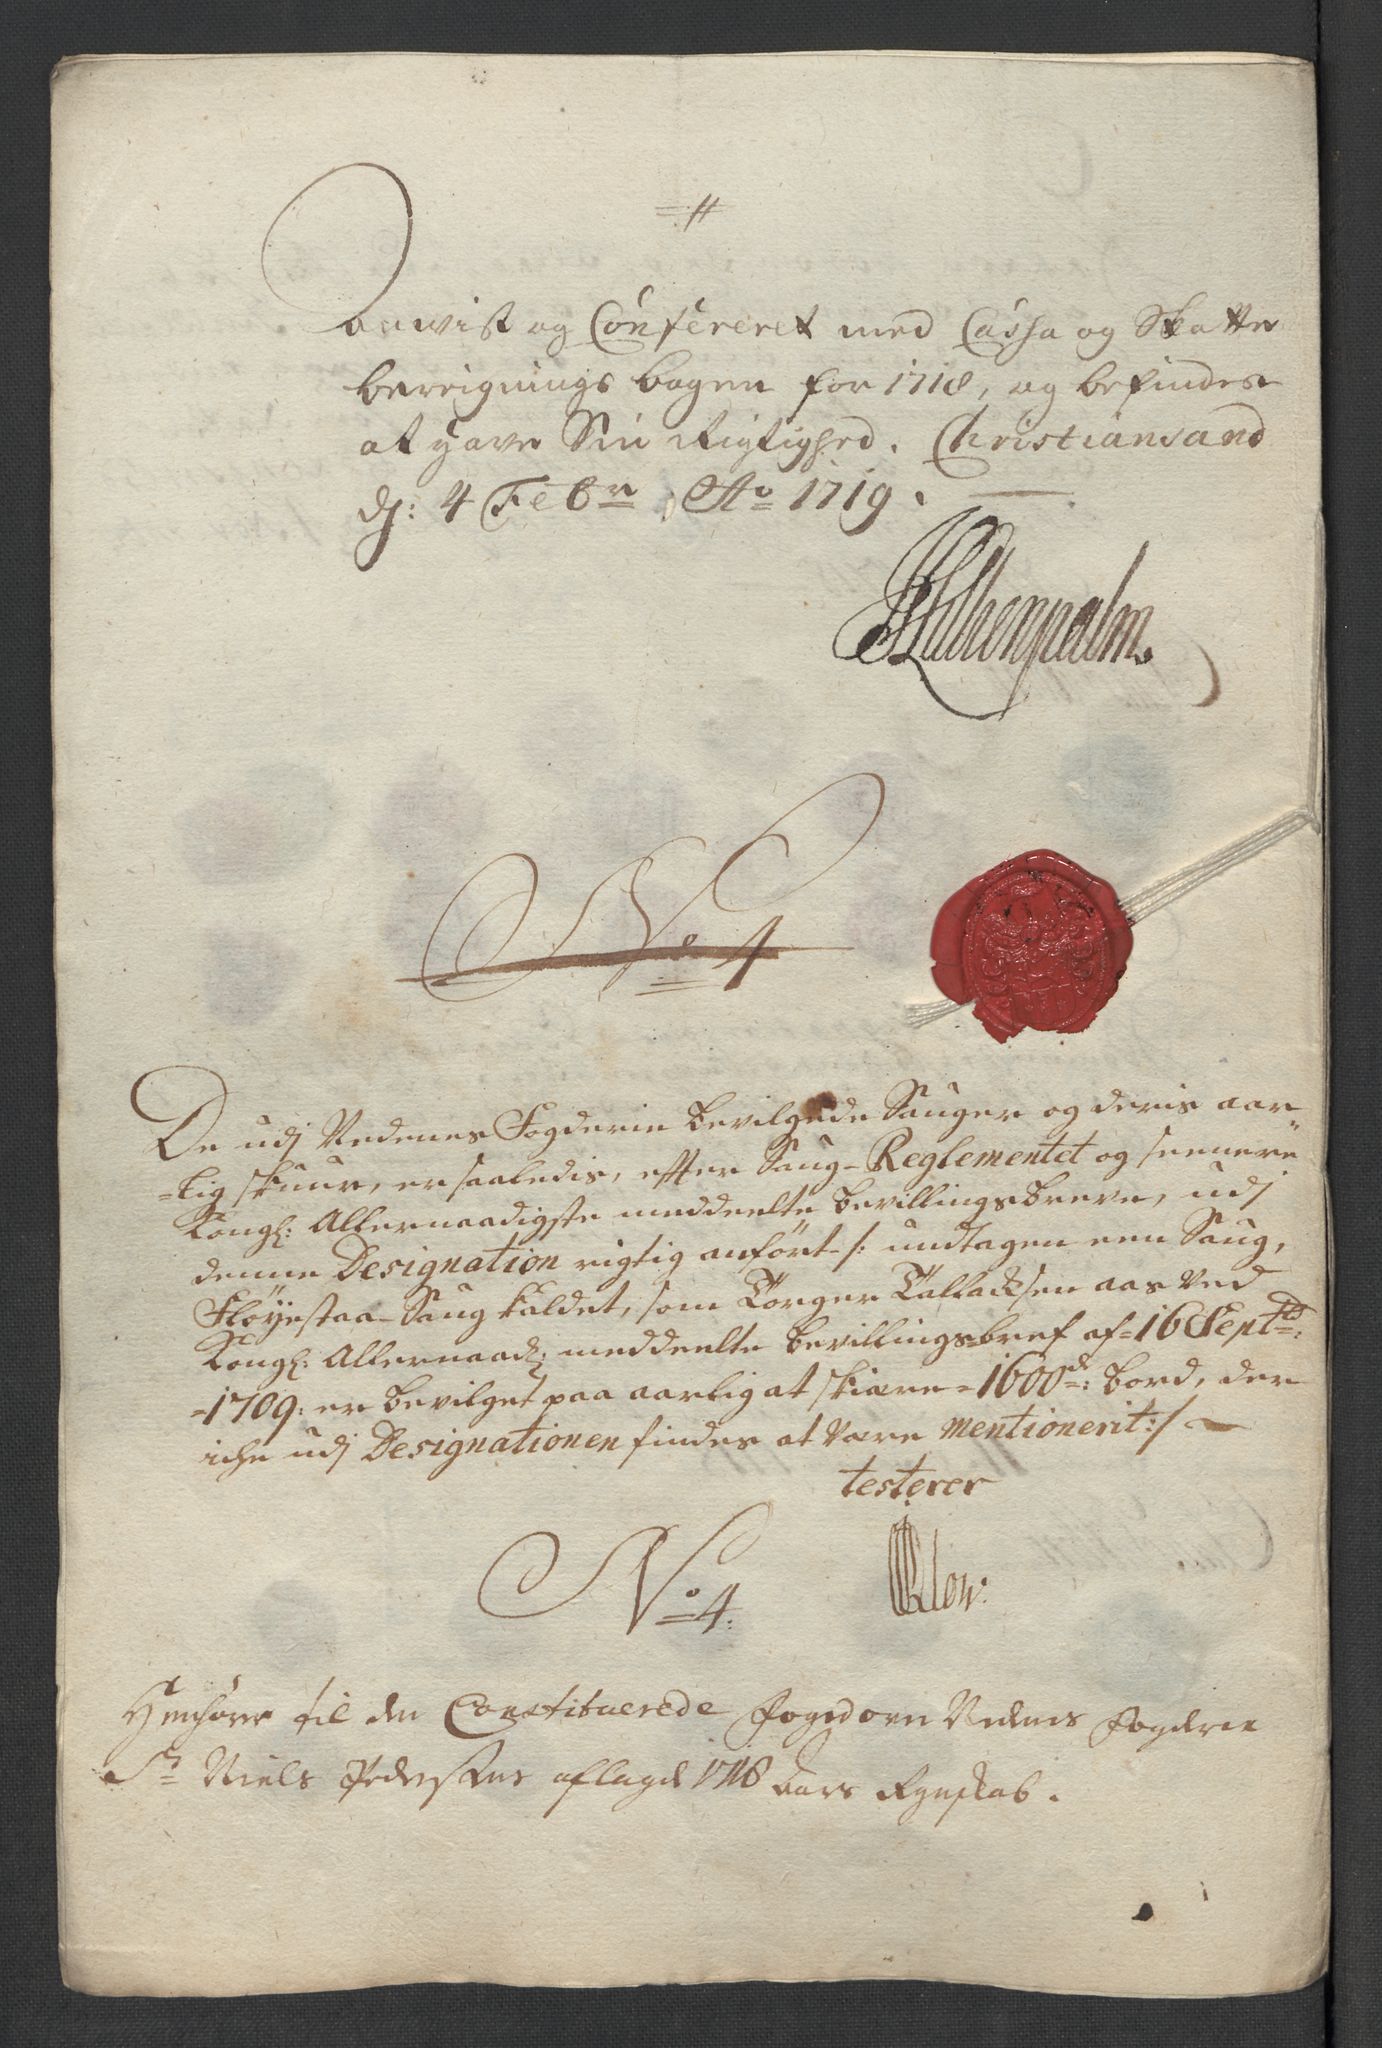 Anvist og Confereret med Cassa og Skatte
bereignings bogen for 1718, og befindes
at have Sin Rigtighed. Christiansand
dj: 4 Febr: Ao 1719.
No 4
De udj Nedenes Fogderie bevilgede Sauger og deris aar
=lig skuur, er saaledis, efter Saug-Reglementet og seenere
Kongl: Allernaadigste meddeelte bevillingsbreve, udj
denne Designation rigtig anført /: undtagen een Saug,
Fløyestaa-Saug kaldet, som Törger Tallacksen aas ved
Kongl: Allernaad: meddeelte bevillings-bref af=16 Septbr:
=1709: er bevilget paa aarlig at skiære=1600de: bord, der
iche udj Designationen findes at være mentionerit:/
testerer
No 4:
Henhører til den Constituerede foged over Nedenes fogderie
Sr Niels Pedersens aflagde 1718 Aars Regnskab.